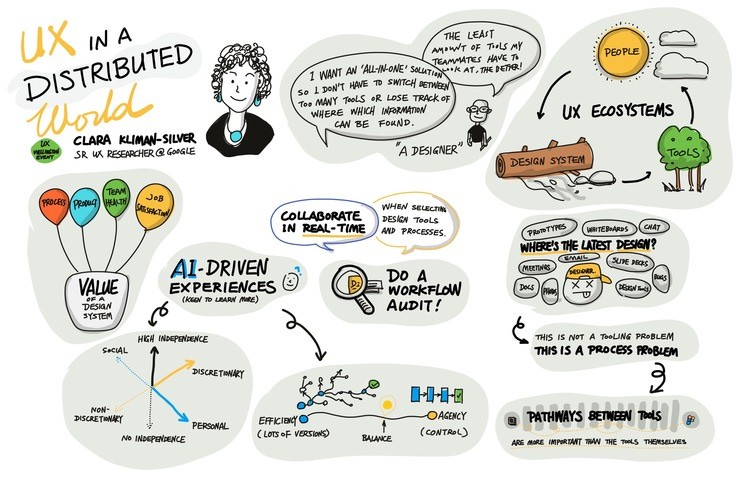 UX IN A
DISTRIBUTED
World
UX
WELLINGTON
EVENT
CLARA KLIMAN-SILVER
SR UX RESEARCHER @ GOOGLE
I WANT AN 'ALL-IN-ONE' SOLUTION
SO I DON'T HAVE TO SWITCH BETWEEN
TOO MANY TOOLS OR LOSE TRACK OF
WHERE WHICH INFORMATION
CAN BE FOUND.
THE LEAST
AMOUNT OF TOOLS MY
TEAMMATES HAVE TO
LOOK AT, THE BETTER!
"A DESIGNER"
PEOPLE
UX ECOSYSTEMS
DESIGN SYSTEM
TOOLS
PROCESS
PRODUCT
TEAM
HEALTH
JOB
SATISFACTION
VALUE
OF A
DESIGN
SYSTEM
COLLABORATE
IN REAL-TIME
WHEN SELECTING
DESIGN TOOLS
AND PROCESSES.
AI-DRIVEN
EXPERIENCES
(KEEN TO LEARN MORE)
DO A
WORKFLOW
AUDIT!
PROTOTYPES
WHITEBOARDS
CHAT
WHERE'S THE LATEST DESIGN?
EMAIL
MEETINGS
SLIDE DECKS
DESIGNER
BUGS
DOCS
DESIGN TOOLS
THIS IS NOT A TOOLING PROBLEM
THIS IS A PROCESS PROBLEM
PATHWAYS BETWEEN TOOLS
ARE MORE IMPORTANT THAN THE TOOLS THEMSELVES
HIGH INDEPENDENCE
SOCIAL
DISCRETIONARY
NON-
DISCRETIONARY
PERSONAL
NO INDEPENDENCE
EFFICIENCY
(LOTS OF VERSIONS)
BALANCE
AGENCY
(CONTROL)